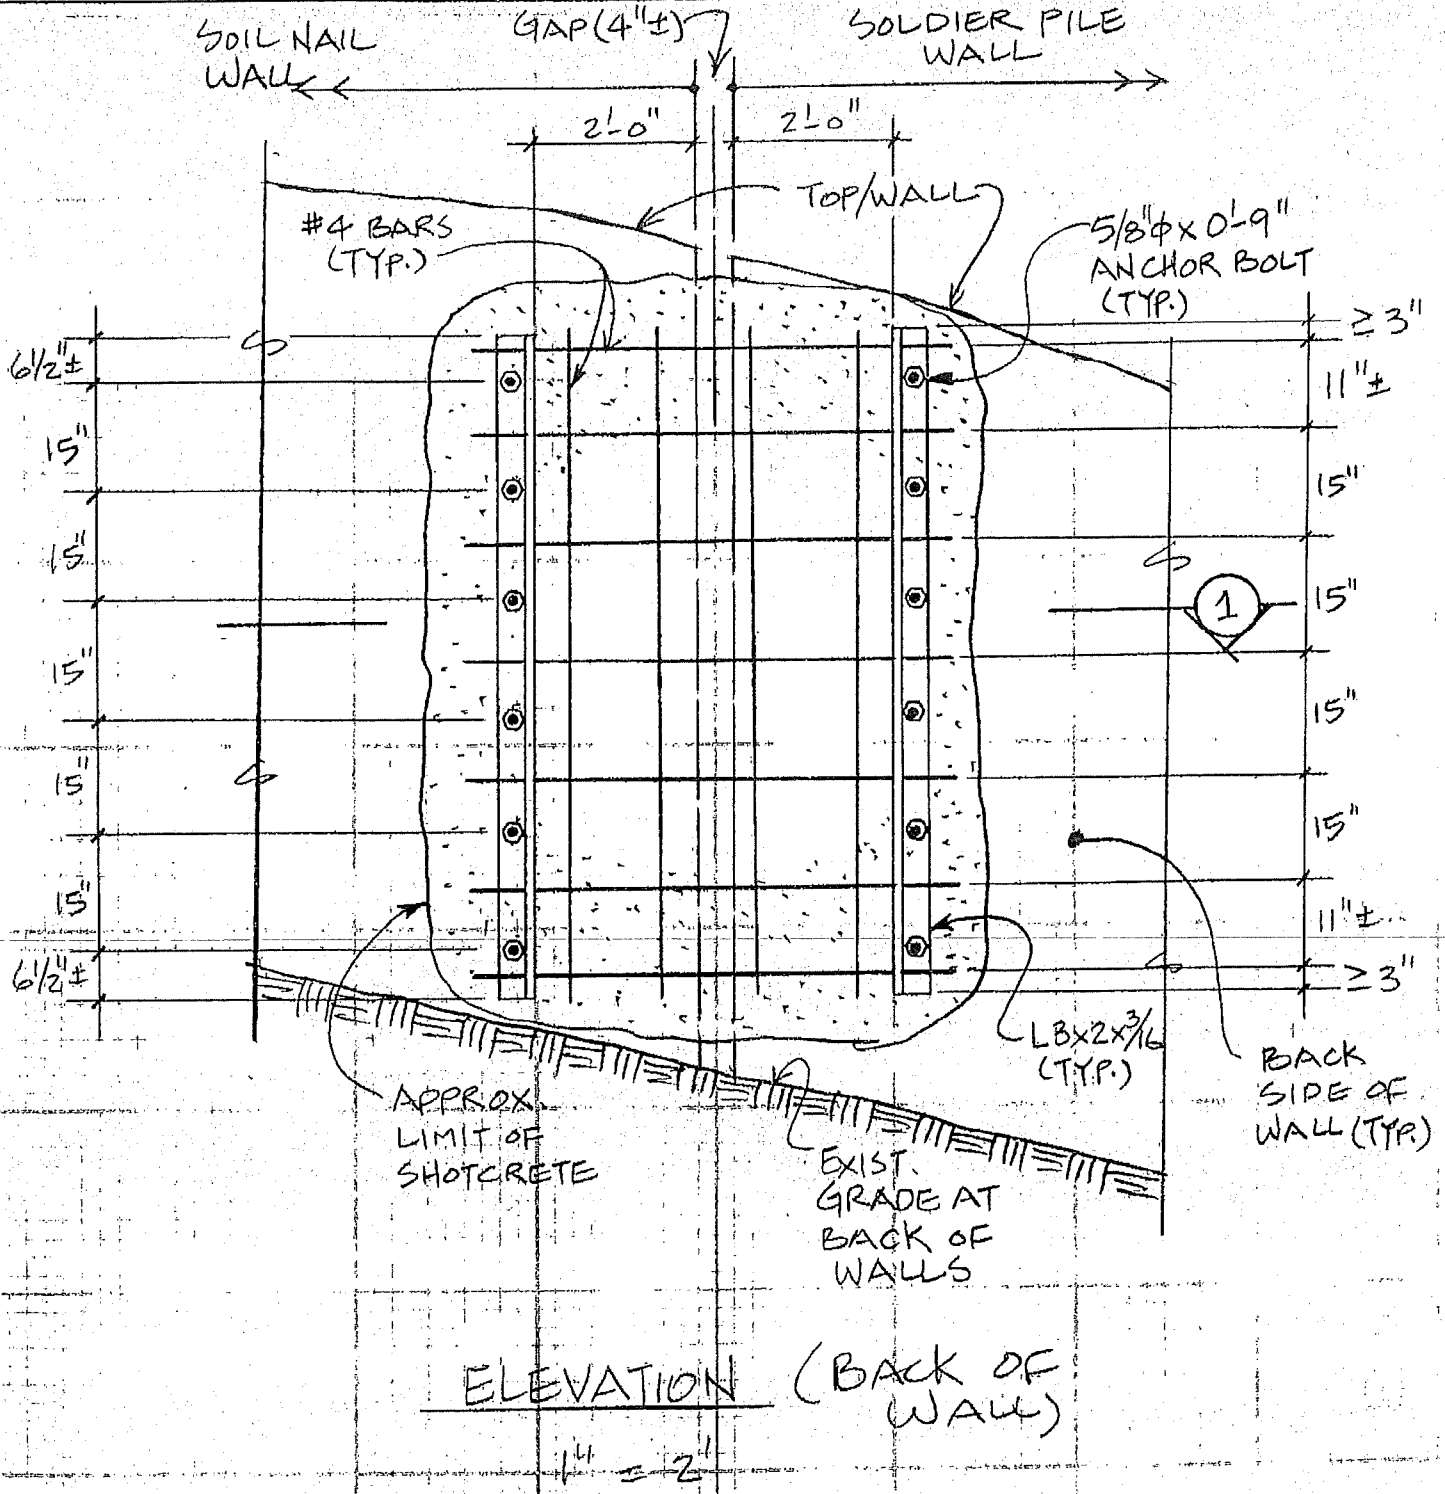 SOIL NAIL
WALL
GAP (4"±)
SOLDIER PILE
WALL
2'-0"
2'-0"
TOP/WALL
#4 BARS
(TYP.)
5/8"φ x 0'-9"
ANCHOR BOLT
(TYP.)
6 1/2"±
15"
15"
15"
15"
15"
6 1/2"±
≥ 3"
11"±
15"
15"
15"
15"
11"±
≥ 3"
1
L3x2x3/16
(TYP.)
BACK
SIDE OF
WALL (TYP.)
APPROX.
LIMIT OF
SHOTCRETE
EXIST.
GRADE AT
BACK OF
WALLS
ELEVATION (BACK OF
WALL)
1" = 2'